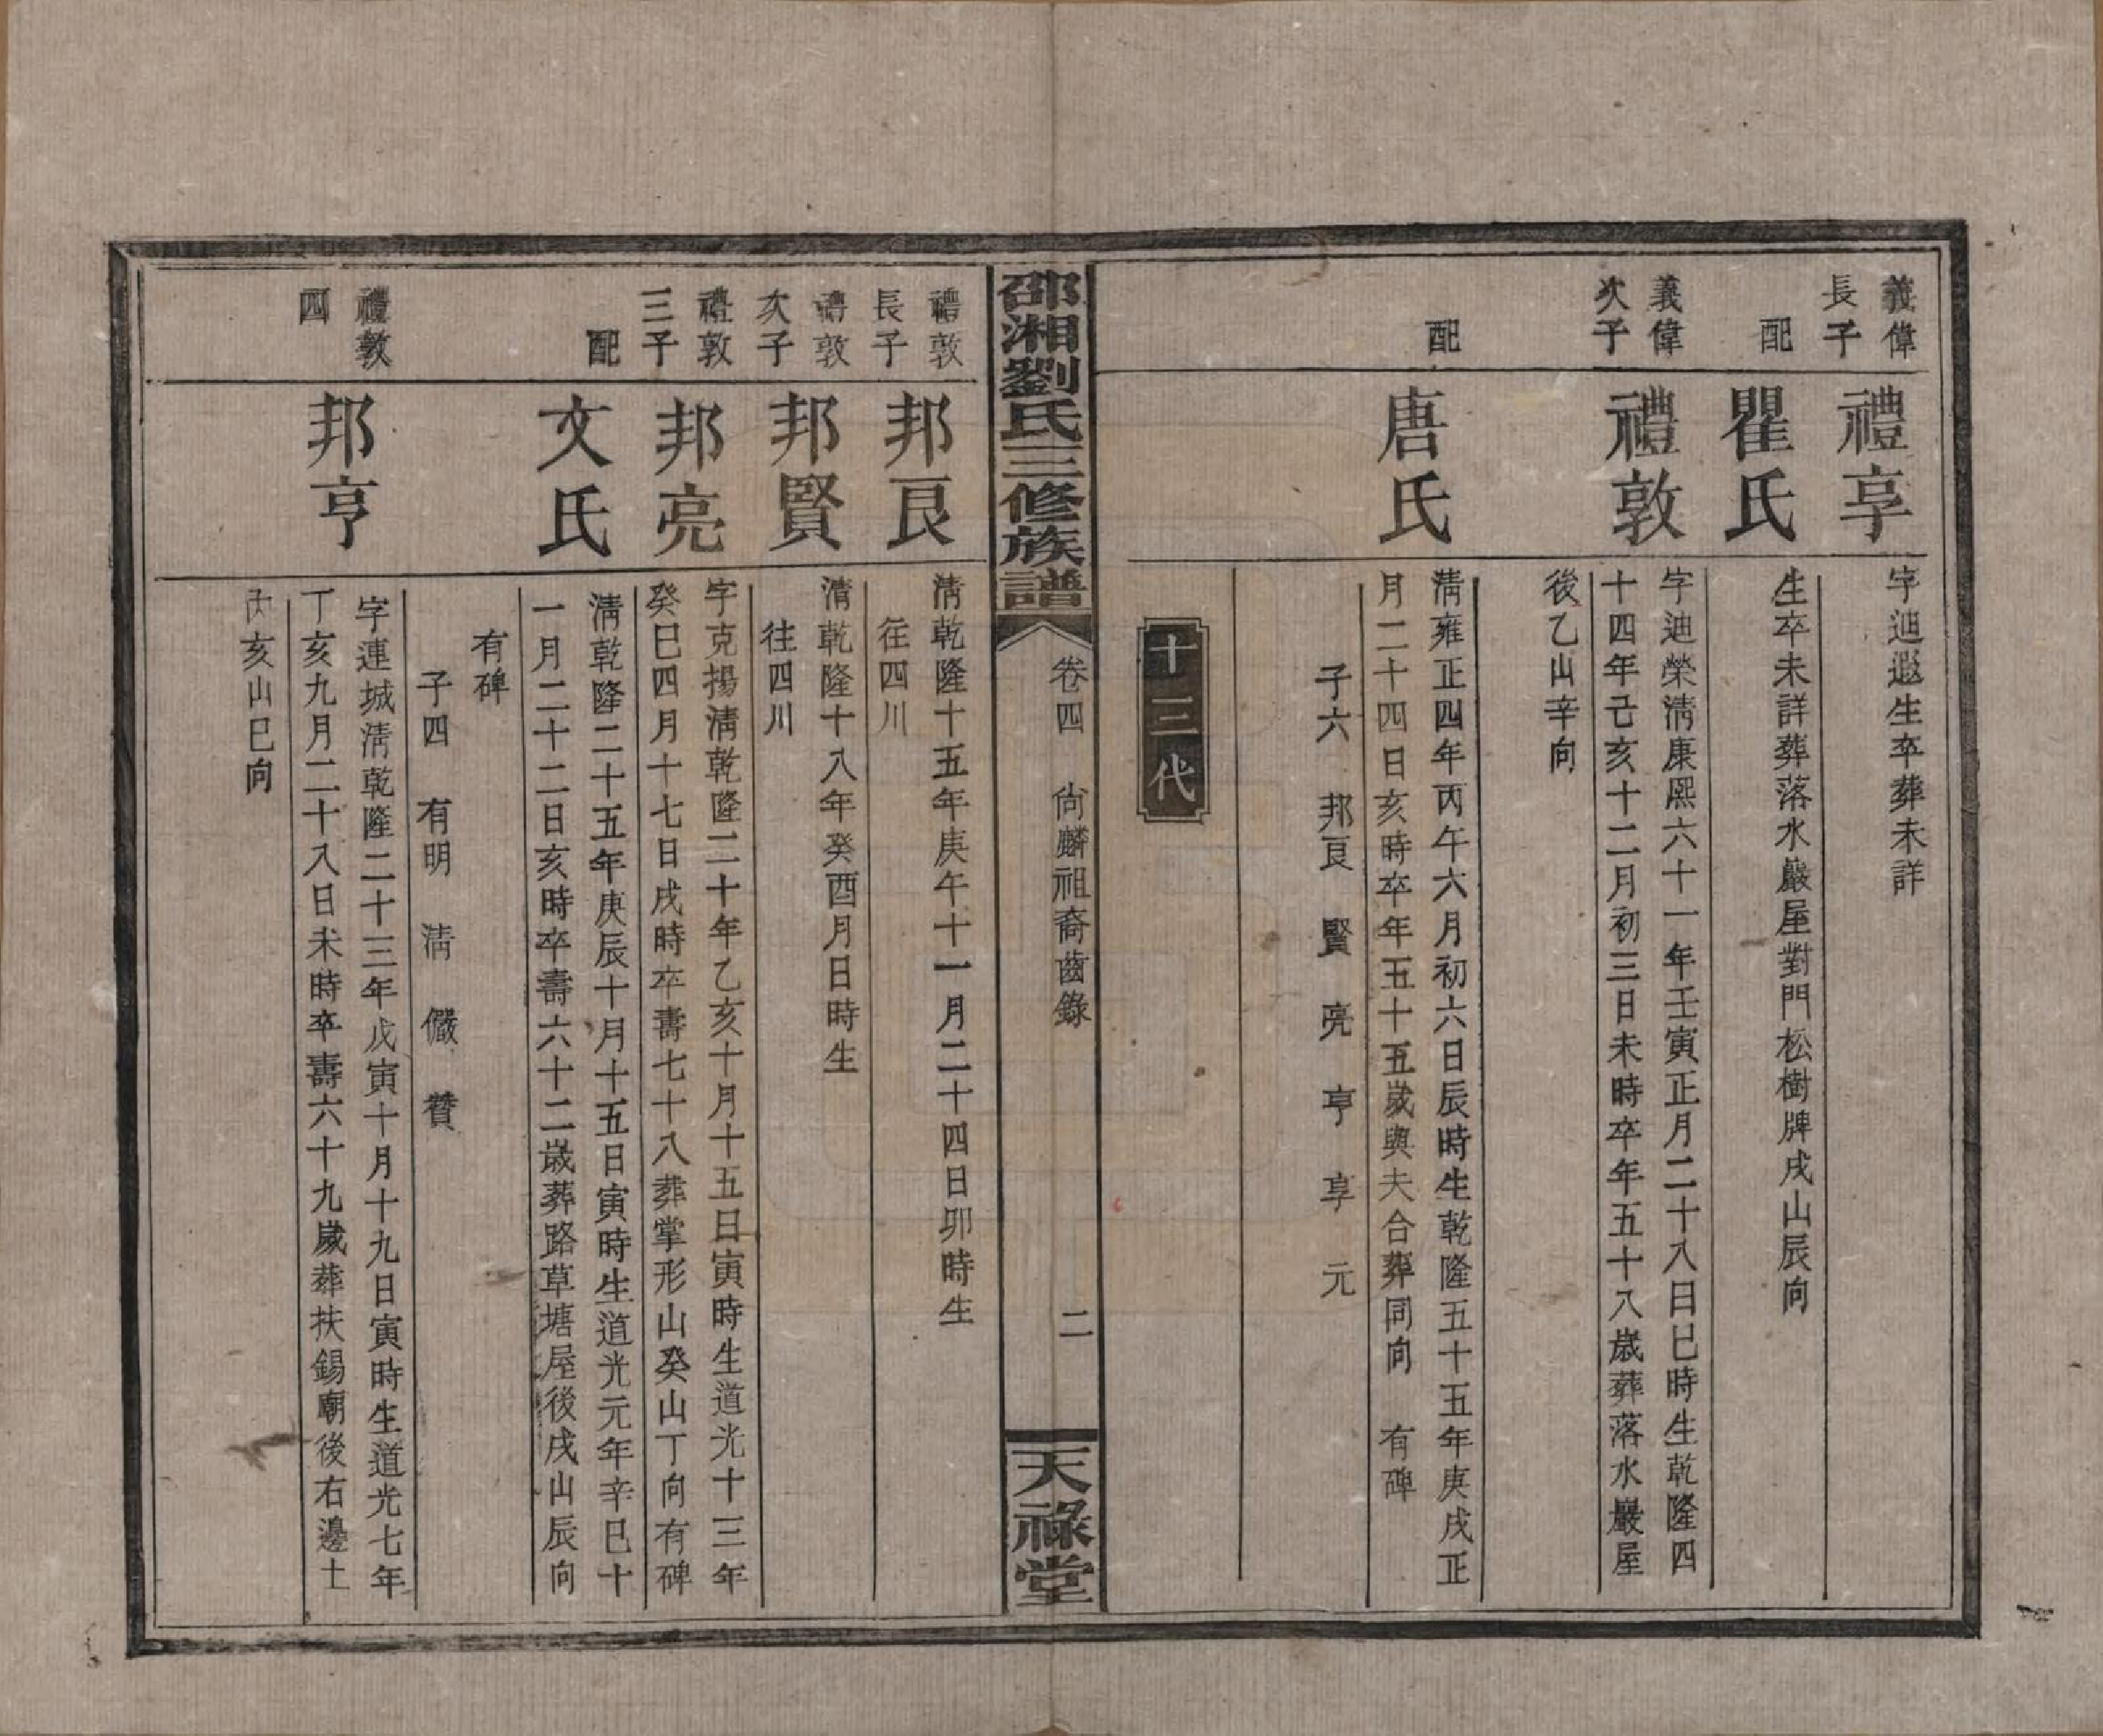 義偉
長子
禮享
字迪遐生卒葬未詳
配
瞿氏
生卒未詳葬落水巖屋對門松樹牌戌山辰向
義偉
次子
禮敦
字迪榮淸康熙六十一年壬寅正月二十八日巳時生乾隆四
十四年己亥十二月初三日未時卒年五十八歲葬落水巖屋
後乙山辛向
配
唐氏
淸雍正四年丙午六月初六日辰時生乾隆五十五年庚戌正
月二十四日亥時卒年五十五歲與夫合葬同向 有碑
子六 邦良 賢 亮 亨 享 元
十三代
邵湘劉氏三修族譜
卷四 尙麟祖裔齒錄
二
天祿堂
禮敦
長子
邦良
淸乾隆十五年庚午十一月二十四日卯時生
往四川
禮敦
次子
邦賢
淸乾隆十八年癸酉月日時生
往四川
禮敦
三子
邦亮
字克揚淸乾隆二十年乙亥十月十五日寅時生道光十三年
癸巳四月十七日戌時卒壽七十八葬掌形山癸山丁向有碑
配
文氏
淸乾隆二十五年庚辰十月十五日寅時生道光元年辛巳十
一月二十二日亥時卒壽六十二歲葬路草塘屋後戌山辰向
有碑
子四 有明 淸 儼 贊
禮敦
四
邦亨
字連城淸乾隆二十三年戊寅十月十九日寅時生道光七年
丁亥九月二十八日未時卒壽六十九歲葬扶錫廟後右邊土
亥山巳向